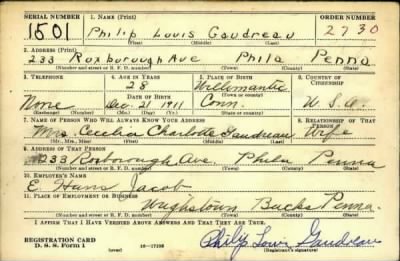 SERIAL NUMBER 1. NAME (Print) ORDER NUMBER
1501 Philip Louis Gaudreau 2730
(First) (Middle) (Last)
2. ADDRESS (Print)
233 Roxborough Ave Phila Penna
(Number and street or R. F. D. number) (Town) (County) (State)
3. TELEPHONE 4. AGE IN YEARS 5. PLACE OF BIRTH 6. COUNTRY OF CITIZENSHIP
28 Willimantic
DATE OF BIRTH (Town or county)
None Dec. 21 1911 Conn. U.S.A.
(Exchange) (Number) (Mo.) (Day) (Yr.) (State or country)
7. NAME OF PERSON WHO WILL ALWAYS KNOW YOUR ADDRESS 8. RELATIONSHIP OF THAT PERSON
Mrs. Cecelia Charlotte Gaudreau Wife
(Mr., Mrs., Miss) (First) (Middle) (Last)
9. ADDRESS OF THAT PERSON
233 Roxborough Ave. Phila Penna
(Number and street or R. F. D. number) (Town) (County) (State)
10. EMPLOYER'S NAME
E. Hans Jacob
11. PLACE OF EMPLOYMENT OR BUSINESS
Bucks Penna.
(Number and street or R. F. D. number) (Town) (County) (State)
I AFFIRM THAT I HAVE VERIFIED ABOVE ANSWERS AND THAT THEY ARE TRUE.
REGISTRATION CARD
D. S. S. Form 1 (over) 16-17105 Philip Louis Gaudreau
(Registrant's signature)